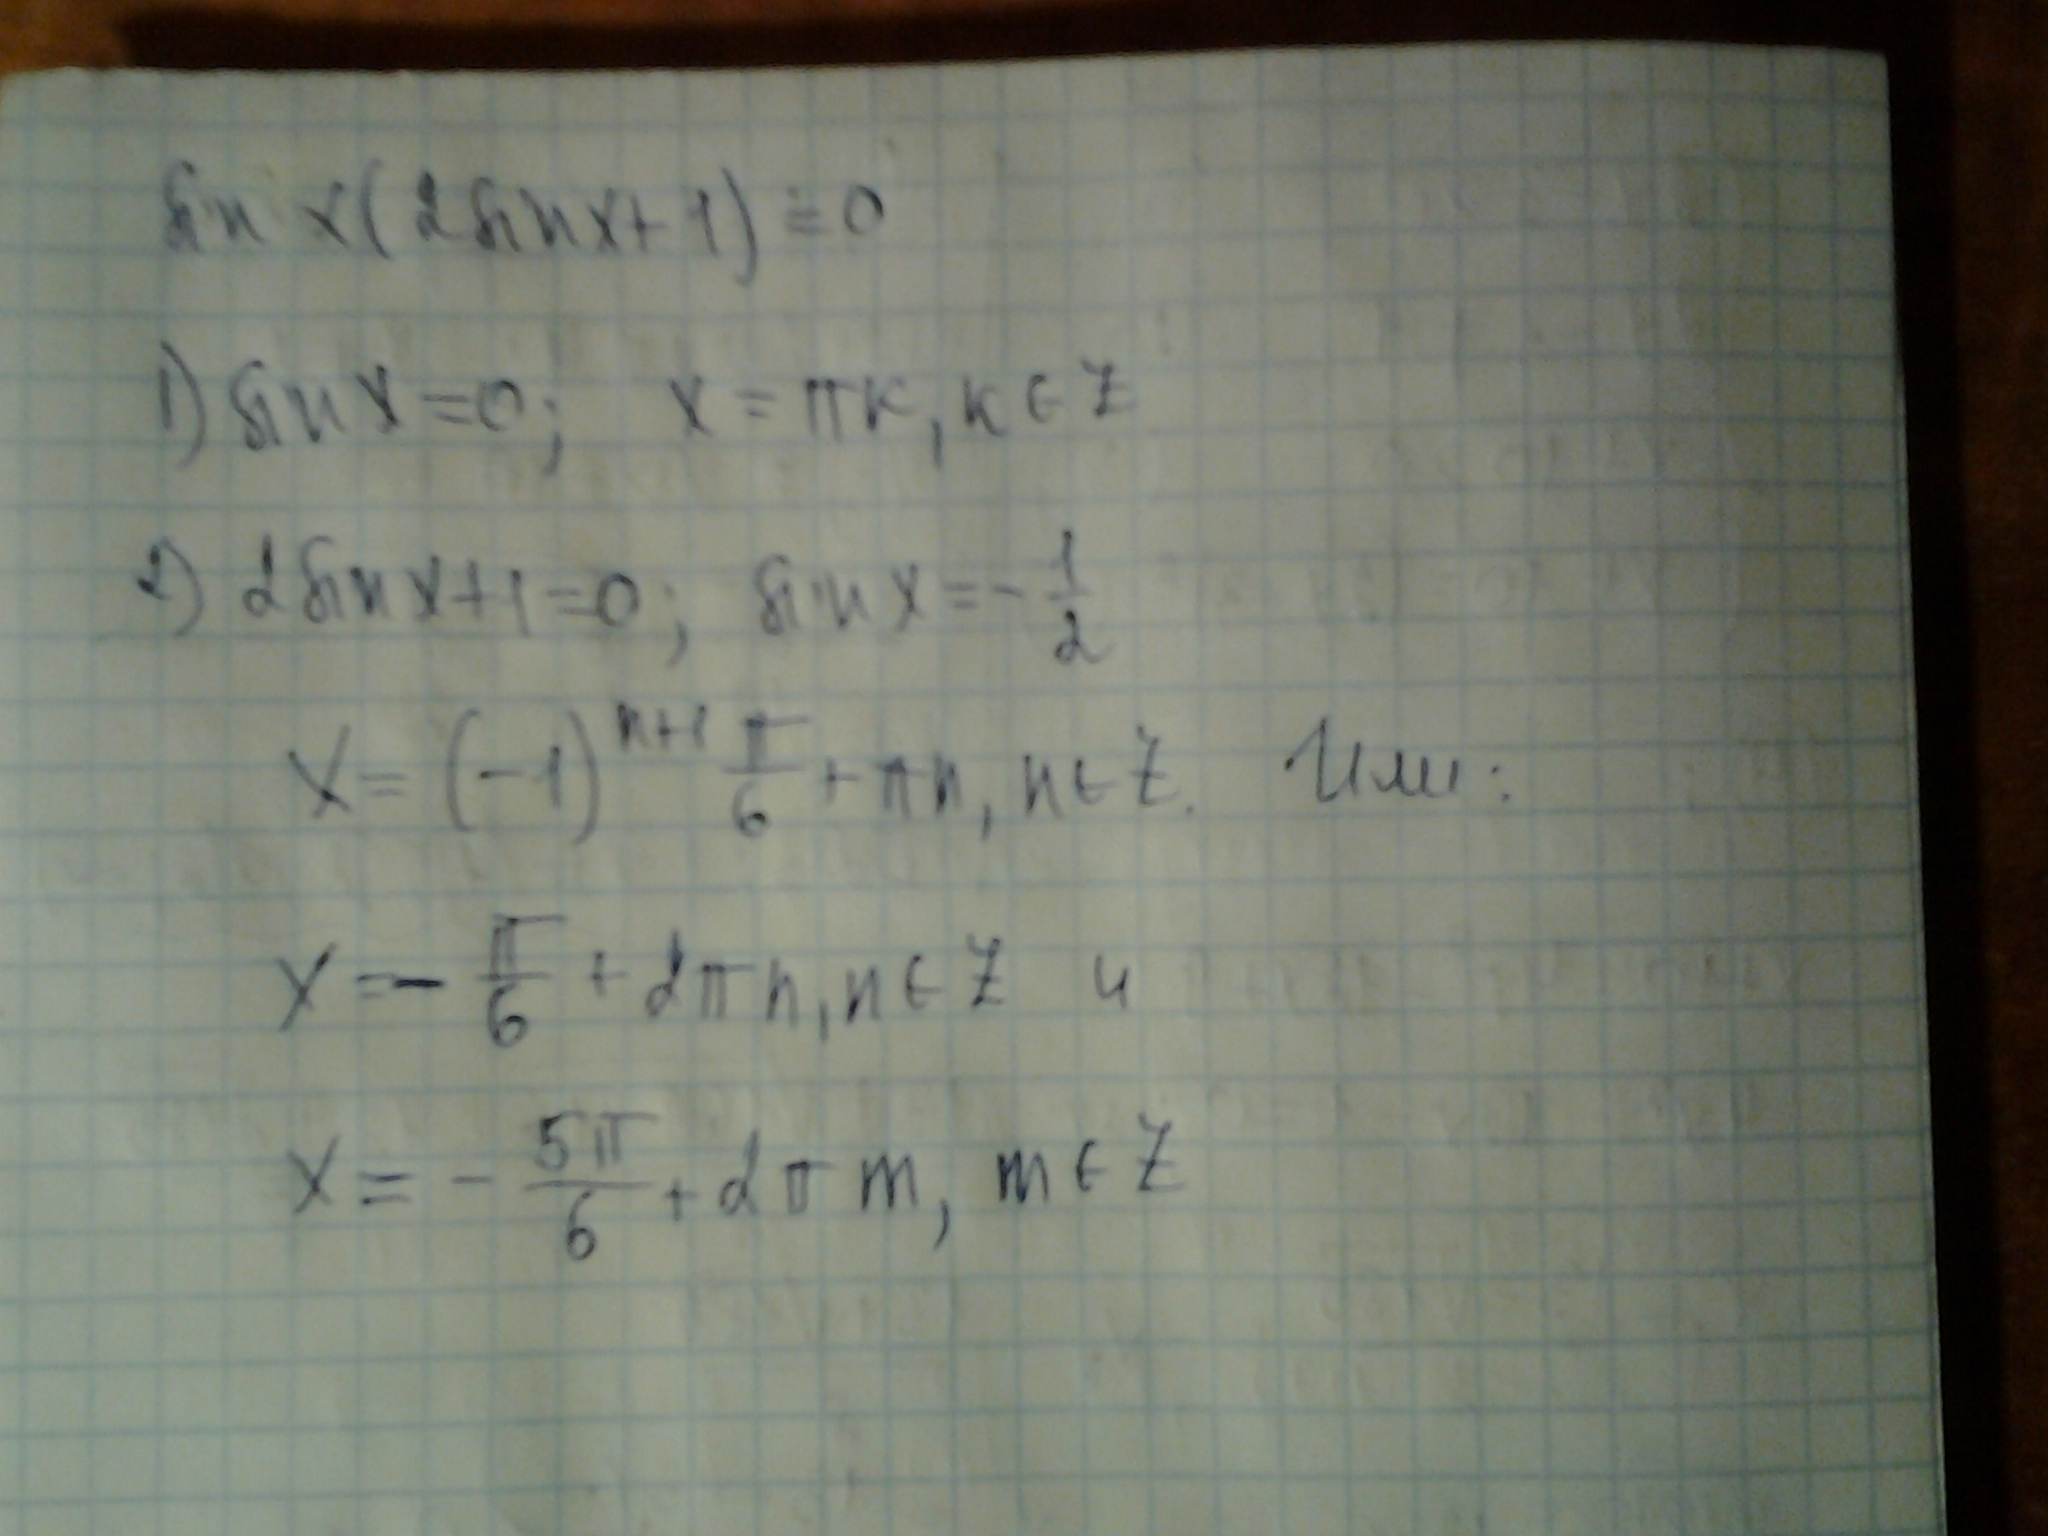 sin x(2sinx+1)=0
1) sinx=0; x=πk, k∈Z
2) 2sinx+1=0; sinx=-1/2
x=(-1)^(n+1) π/6+πn, n∈Z. Или:
x=-π/6+2πn, n∈Z и
x=-5π/6+2πm, m∈Z